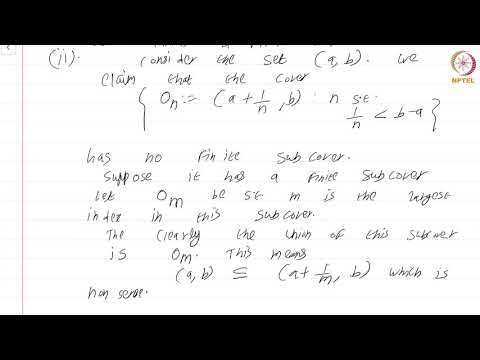 (ii). Consider the set (a, b). We
claim that the cover
{ O_n := (a + 1/n, b) : n s.t. 1/n < b-a }
has no finite subcover.
Suppose it has a finite subcover
let O_m be s.t m is the largest
index in this subcover.
The clearly the union of this subcover
is O_m. This means
(a, b) ⊆ (a + 1/m, b) which is
non sense.
NPTEL